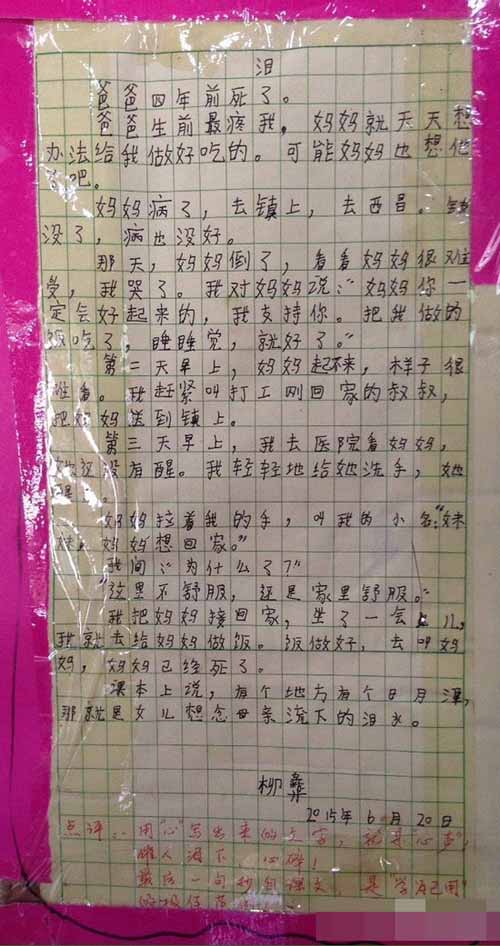 泪
爸爸四年前死了。
爸爸生前最疼我，妈妈就天天想
办法给我做好吃的。可能妈妈也想他
了吧。
妈妈病了，去镇上，去西昌。钱
没了，病也没好。
那天，妈妈倒了，看看妈妈很难
受，我哭了。我对妈妈说：“妈妈你一
定会好起来的，我支持你。把我做的
饭吃了，睡睡觉，就好了。”
第二天早上，妈妈起不来，样子很
难看。我赶紧叫打工刚回家的叔叔，
把妈妈送到镇上。
第三天早上，我去医院看妈妈，
她还没有醒。我轻轻地给她洗手，她
醒了。
妈妈拉着我的手，叫我的小名：“妹
妹，妈妈想回家。”
我问：“为什么了？”
“这里不舒服，还是家里舒服。”
我把妈妈接回家，坐了一会儿，
我就去给妈妈做饭。饭做好，去叫妈
妈，妈妈已经死了。
课本上说，有个地方有个日月潭，
那就是女儿想念母亲流下的泪水。
柳彝
2015年6月20日
点评：用“心”写出来的文字，就是“心声”，
催人泪下 心碎！
最后一句抄自课文，是“学为己用”